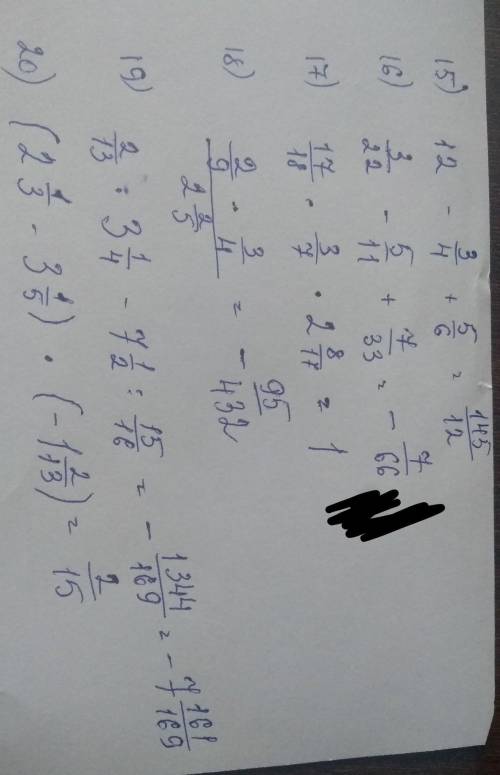 15) 12 - 3/4 + 5/6 = 145/12
16) 3/22 - 5/11 + 7/33 = - 7/66
17) 17/18 · 3/7 · 2 8/17 = 1
18) (2/9 - 3/4)/(2 2/5) = - 95/432
19) 2/13 : 3 1/4 - 7 1/2 : 15/16 = - 1344/169 = - 7 161/169
20) (2 1/3 - 3 1/5) · (-1 2/13) = 2/15